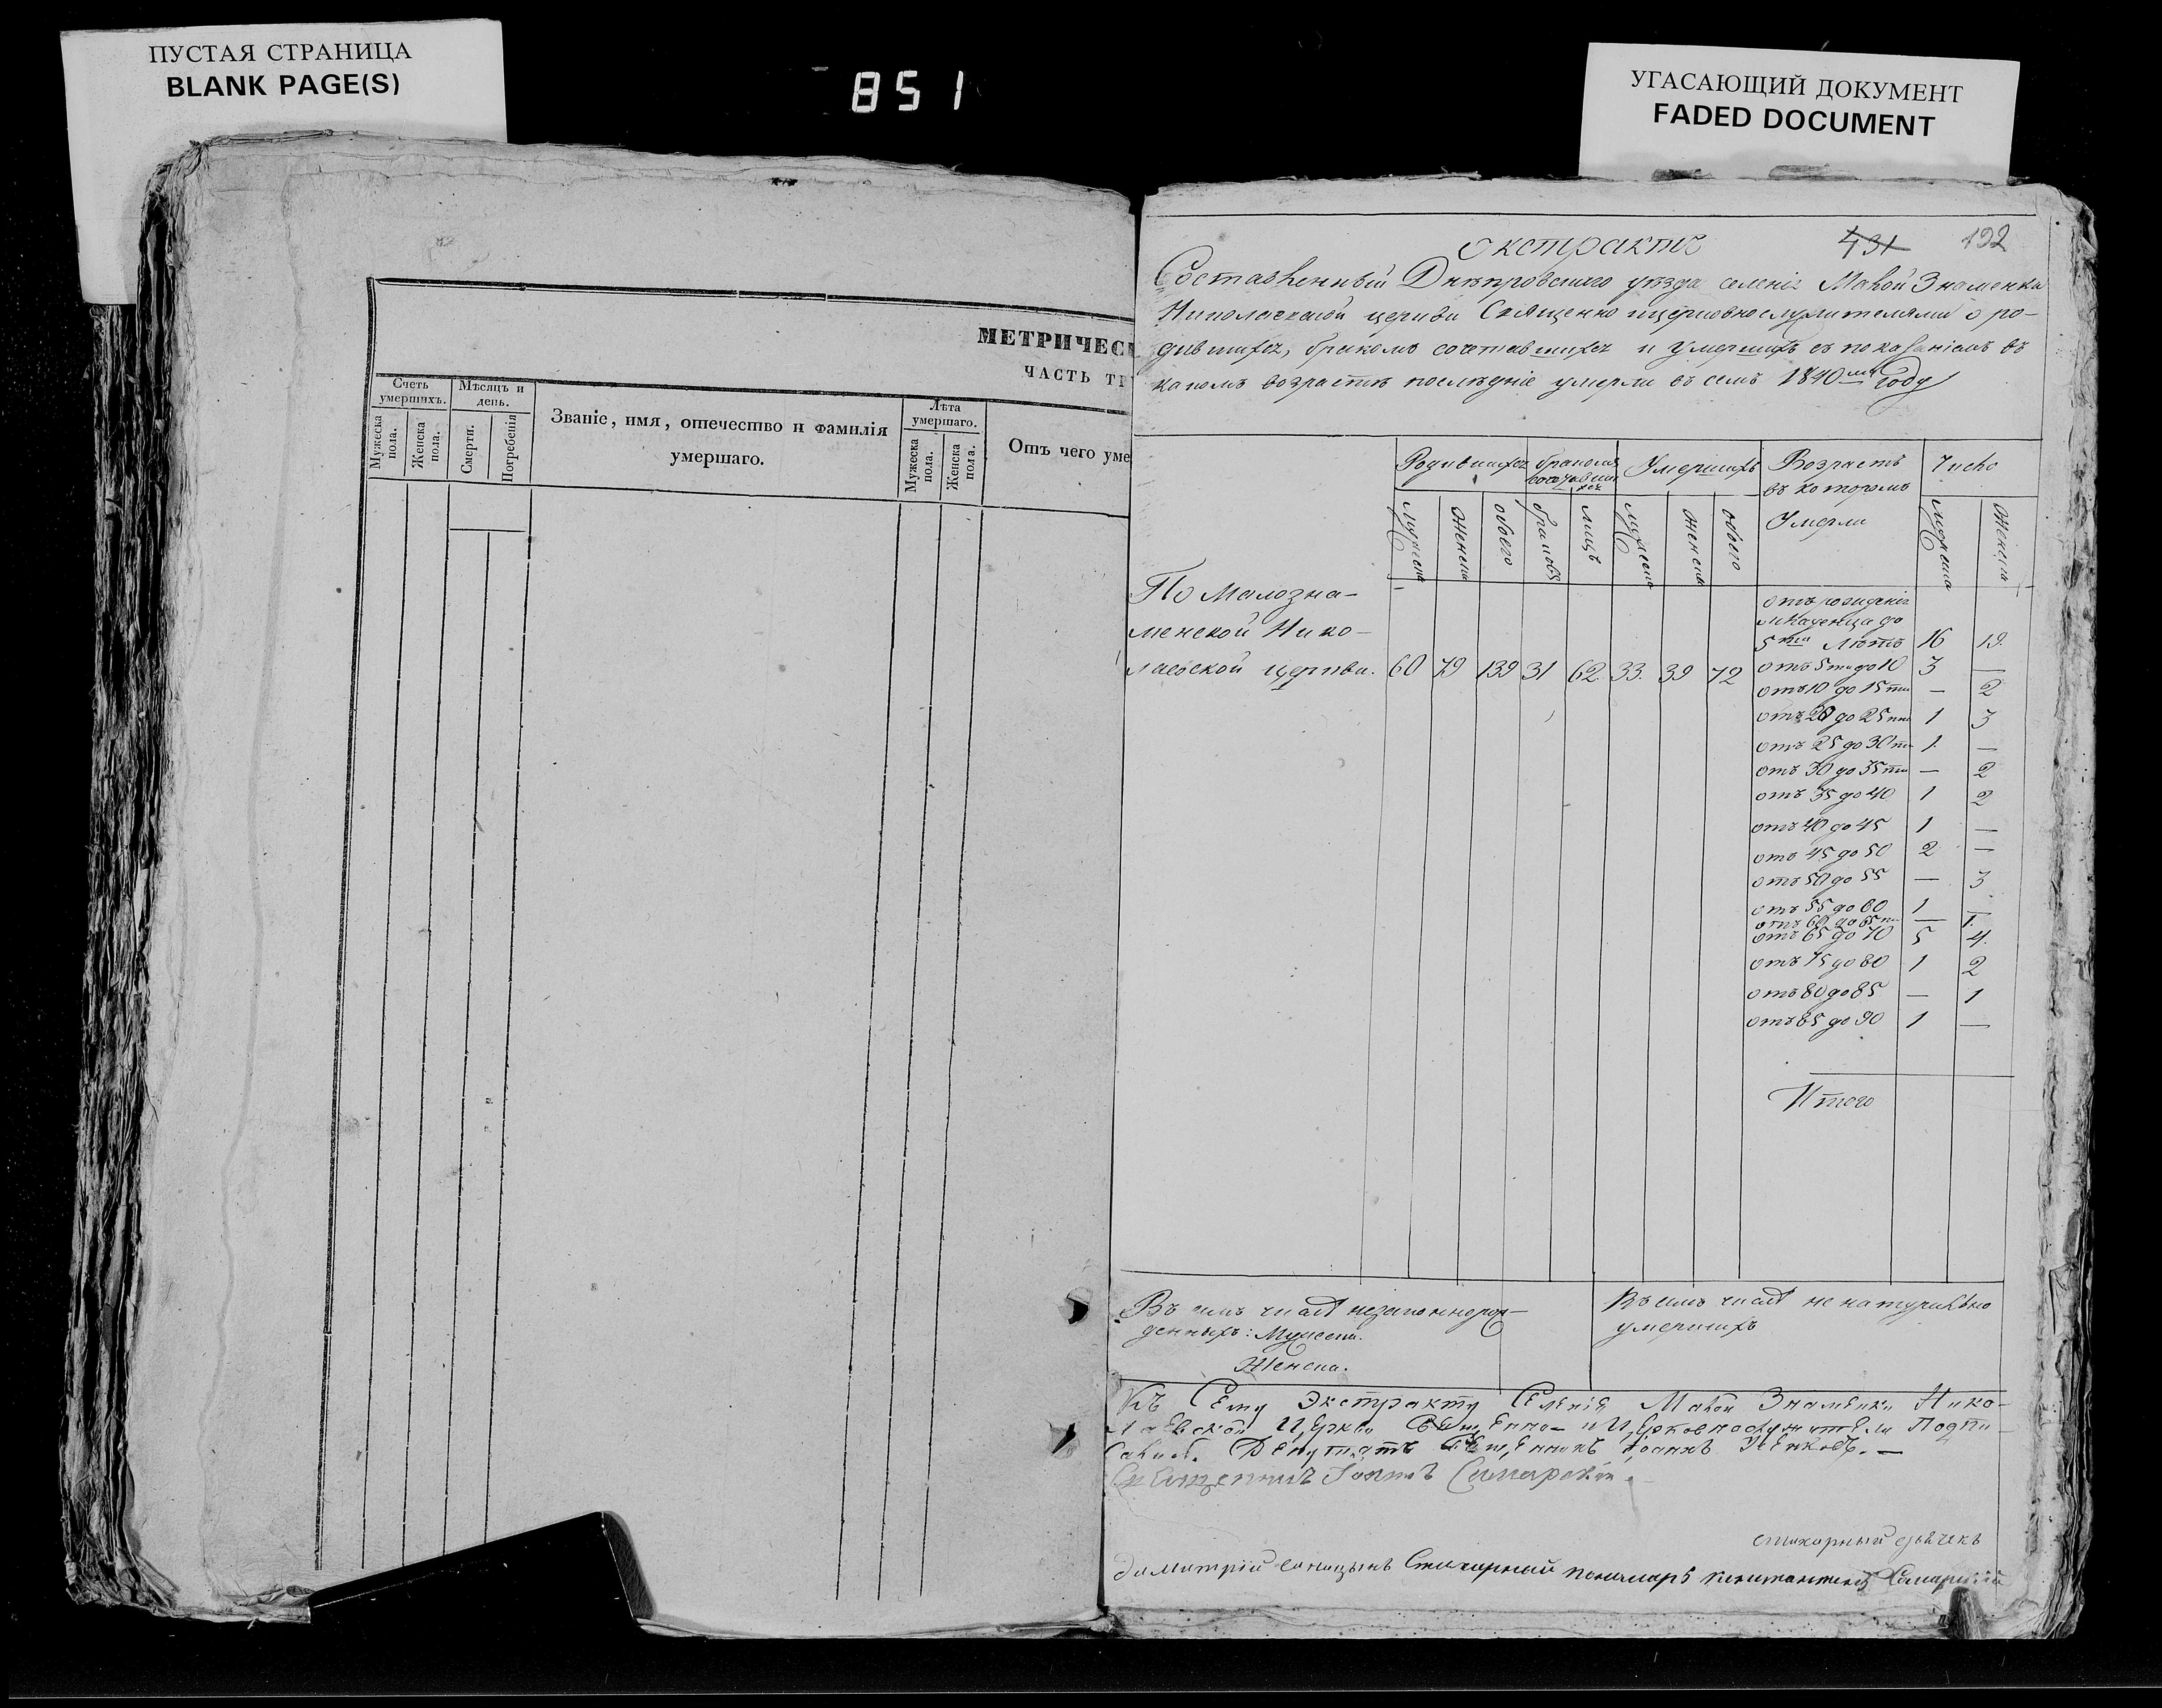 ПУСТАЯ СТРАНИЦА
BLANK PAGE(S)
851
УГАСАЮЩИЙ ДОКУМЕНТ
FADED DOCUMENT
МЕТРИЧЕС
ЧАСТЬ ТР
Счеть умершихъ.
Мѣсяцъ и день.
Званіе, имя, отечество и фамилія умершаго.
Лѣта умершаго.
Отъ чего уме
Мужеска пола.
Женска пола.
Смерти.
Погребенія
Мужеска пола.
Женска пола.
Экстрактъ 431 192
Составленный Днѣпровскаго уѣзда селенія Малой Знаменки
Николаевской церкви Священно и церковнослужителями о ро-
дившихся, бракомъ сочетавшихся и умершихъ съ показаніемъ въ
какомъ возрастѣ послѣдніе умерли въ семъ 1840мъ Году
Родившихся
бракомъ сочетавшихся
Умершихъ
Возрастъ въ которомъ Умерли
Число
мужеска
женска
обоего
браковъ
лицъ
мужеска
женска
обоего
мужеска
женска
По Малозна-
менской Нико-
лаевской церкви. 60 79 139 31 62. 33. 39 72
отъ рожденія
младенца до
5ти Лѣтъ 16 19.
отъ 5ти до 10 3 —
отъ 10 до 15ти — 2
отъ 20 до 25ти 1 3
отъ 25 до 30ти 1. —
отъ 30 до 35ти — 2
отъ 35 до 40 1 2
отъ 40 до 45 1 —
отъ 45 до 50 2 —
отъ 50 до 55 — 3
отъ 55 до 60 1 —
отъ 60 до 65ти — 1.
отъ 65 до 70 5 4.
отъ 75 до 80 1 2
отъ 80 до 85 — 1
отъ 85 до 90 1 —
Итого
Въ семъ числѣ незаконнорож-
денныхъ: Мужеска.
Женска.
Въ семъ числѣ не натурально
умершихъ
Къ Сему Экстракту Селенія Малой Знаменки Нико-
лаевской Церкви Священно- и Церковнослужители Подпи-
сались. Депутатъ Священникъ Іоаннъ
Священникъ Іоаннъ Самарскій.
стихарный дьячекъ
Димитрій Синицынъ Стихарный пономарь Константинъ Самарскій